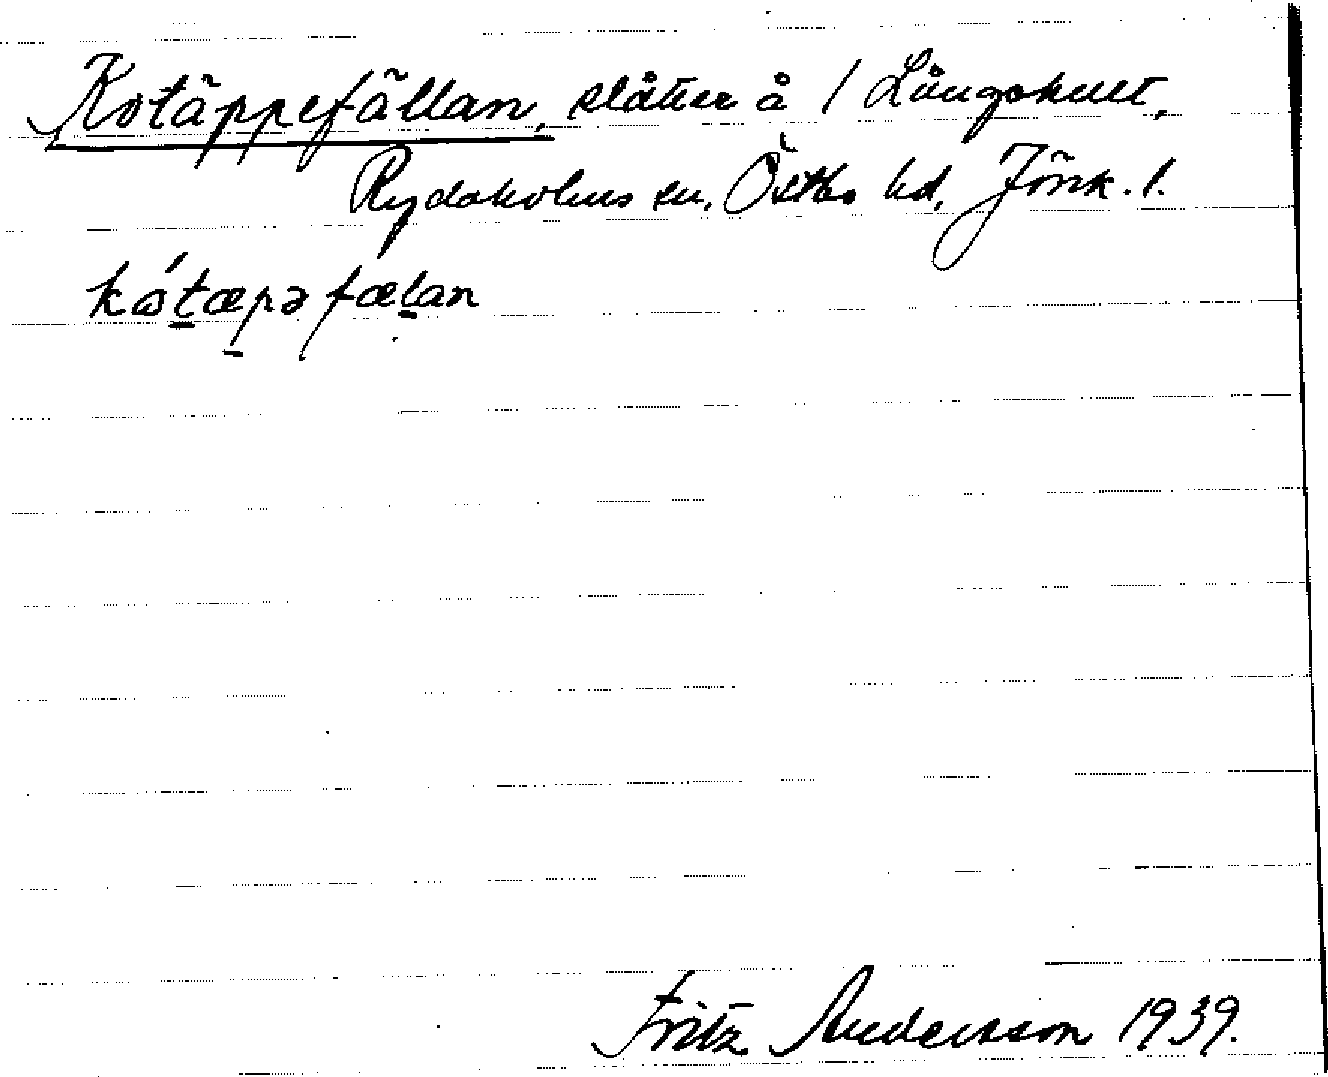 Kotäppefällan, slåtter å 1 Långshult,
Rydaholms sn. Östbo hd. Jönk. l.
kótæpə fælan
Fritz Andersson 1939.